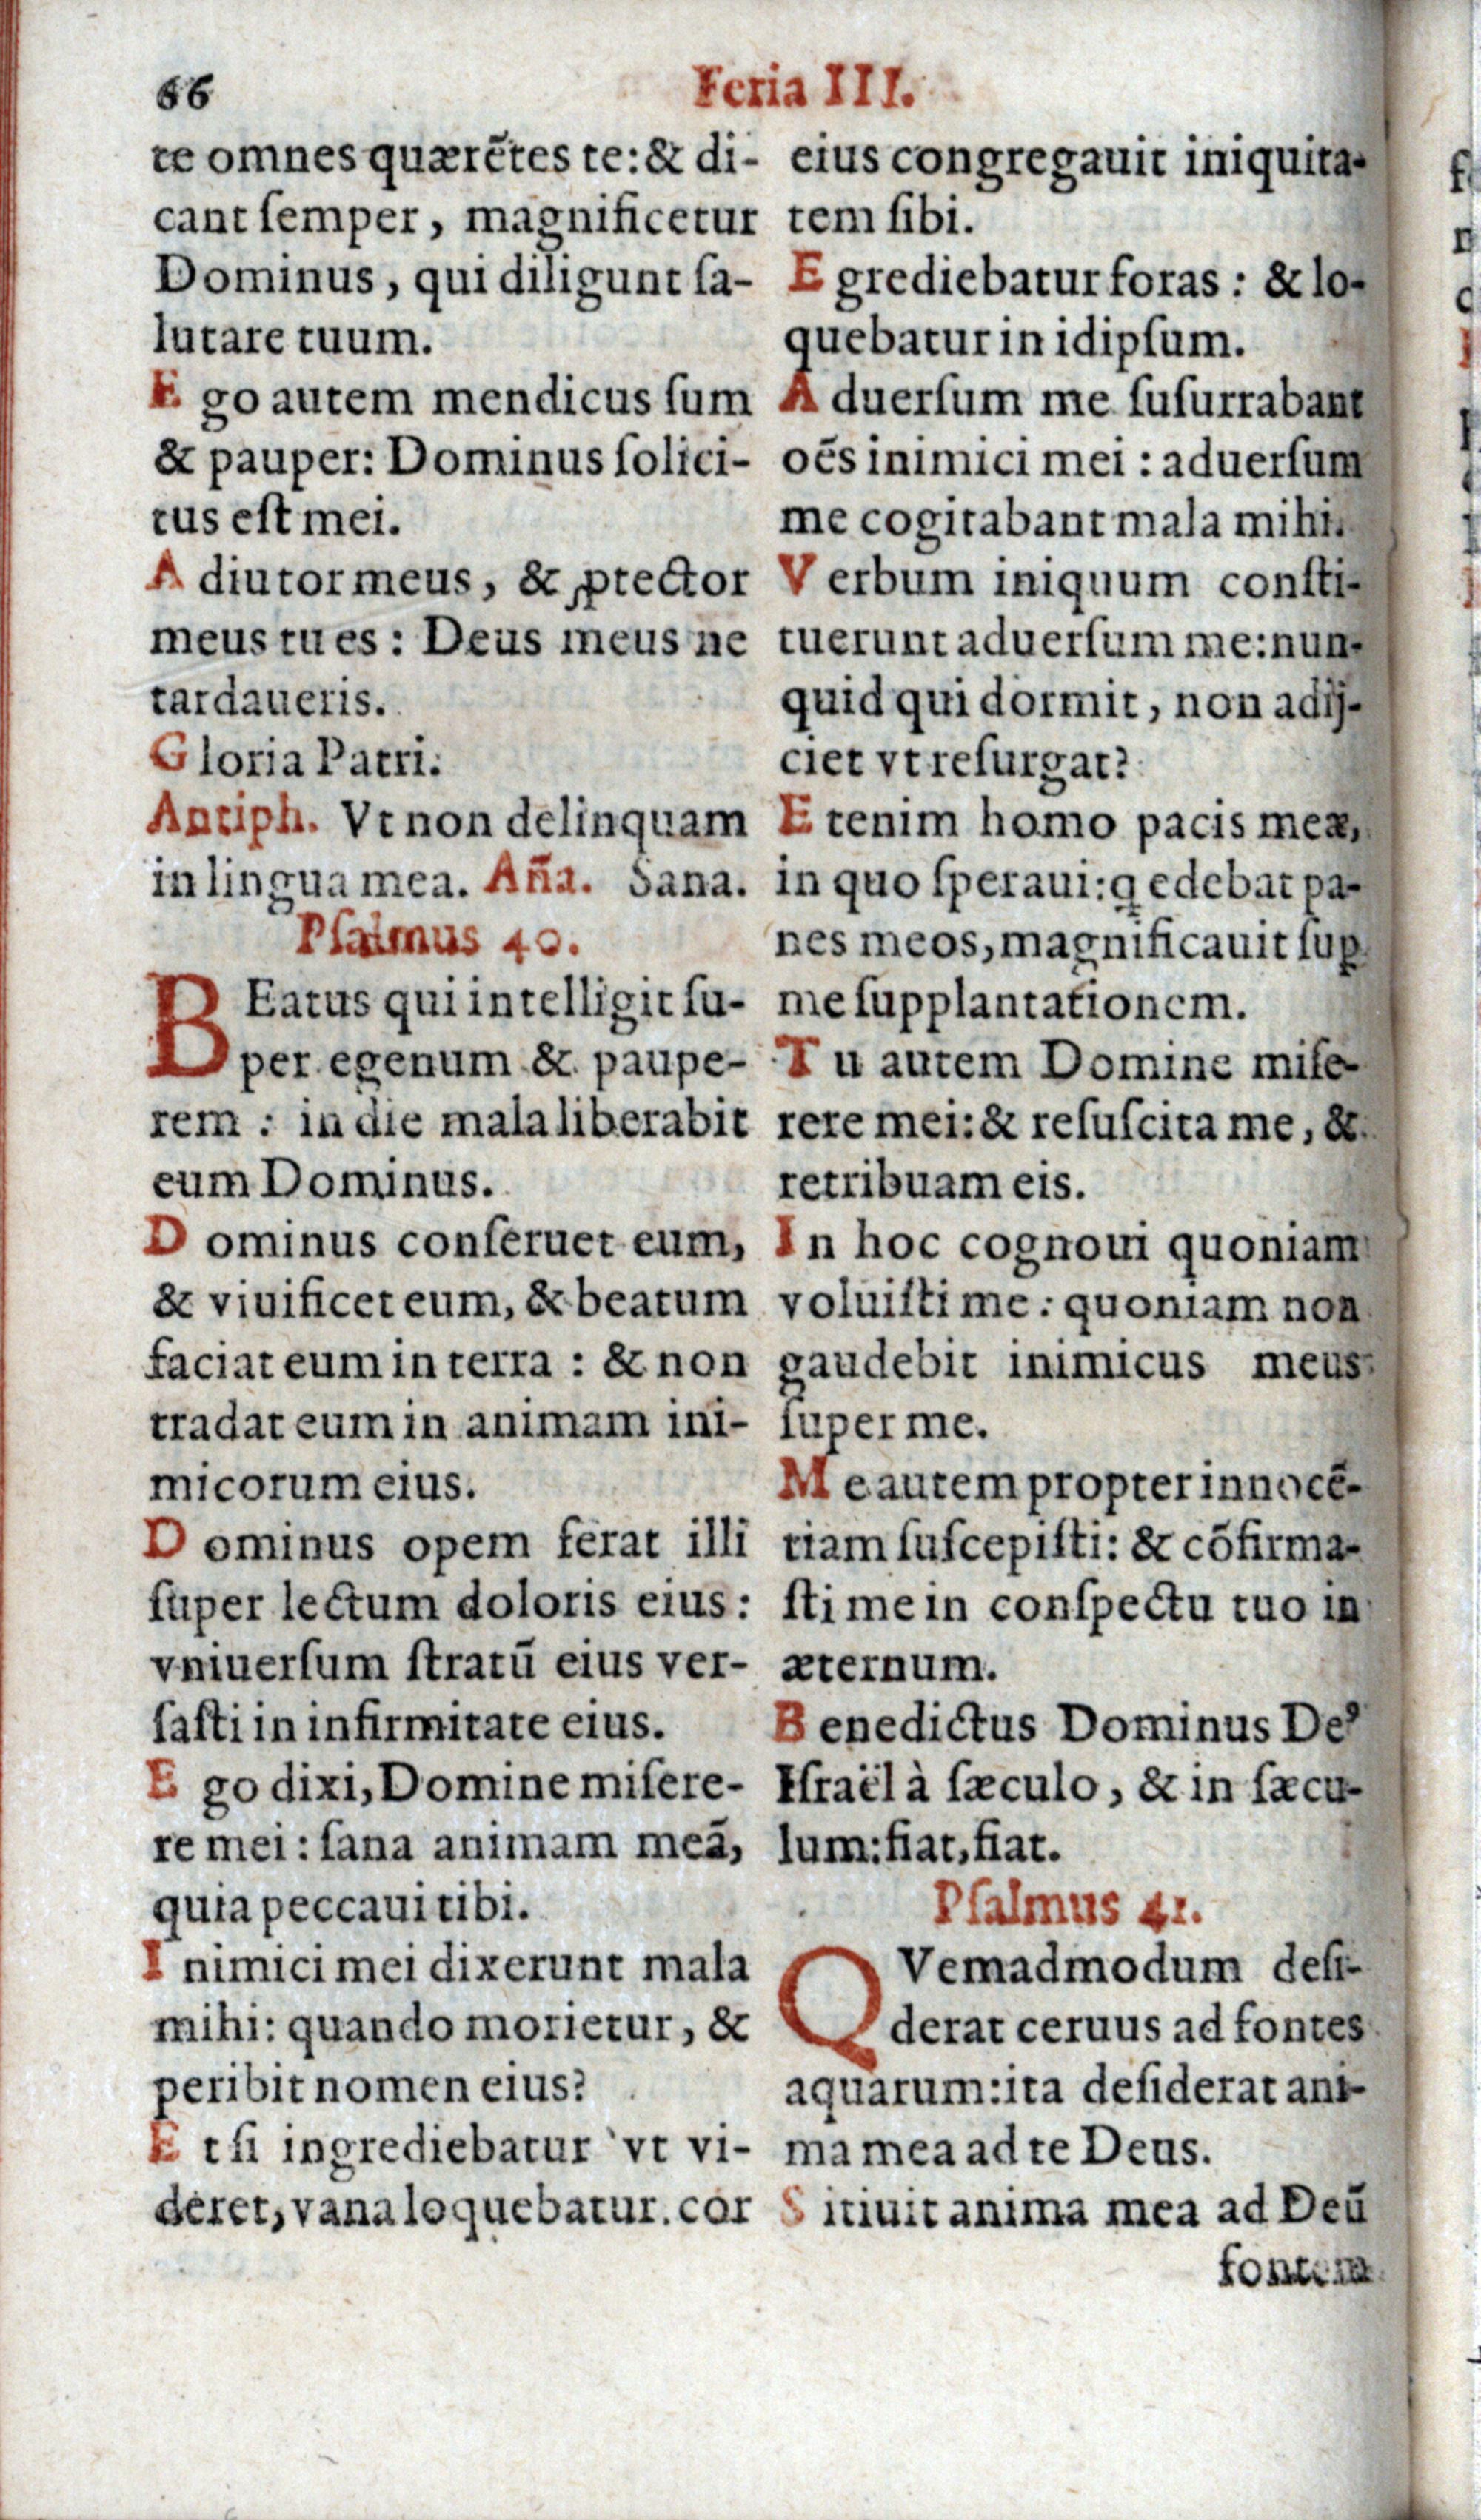 66
Feria III.
te omnes quærẽtes te: & di-
cant ſemper, magnificetur
Dominus, qui diligunt ſa-
lutare tuum.
E go autem mendicus ſum
& pauper: Dominus ſolici-
tus eſt mei.
A diutor meus, & ꝓtector
meus tu es: Deus meus ne
tardaueris.
G loria Patri.
Antiph. Vt non delinquam
in lingua mea. Añа. Sana.
Pſalmus 40.
BEatus qui intelligit ſu-
per egenum & paupe-
rem: in die mala liberabit
eum Dominus.
D ominus conſeruet eum,
& viuificet eum, & beatum
faciat eum in terra: & non
tradat eum in animam ini-
micorum eius.
D ominus opem ferat illi
ſuper lectum doloris eius:
vniuerſum ſtratũ eius ver-
ſaſti in infirmitate eius.
E go dixi, Domine miſere-
re mei: ſana animam meã,
quia peccaui tibi.
I nimici mei dixerunt mala
mihi: quando morietur, &
peribit nomen eius?
E t ſi ingrediebatur vt vi-
deret, vana loquebatur. cor
eius congregauit iniquita-
tem ſibi.
E grediebatur foras: & lo-
quebatur in idipſum.
A duerſum me ſuſurrabant
oẽs inimici mei: aduerſum
me cogitabant mala mihi.
V erbum iniquum conſti-
tuerunt aduerſum me: nun-
quid qui dormit, non adij-
ciet vt reſurgat?
E tenim homo pacis meæ,
in quo ſperaui: q̨ edebat pa-
nes meos, magnificauit ſuꝑ
me ſupplantationem.
T u autem Domine miſe-
rere mei: & reſuſcita me, &
retribuam eis.
I n hoc cognoui quoniam
voluiſti me: quoniam non
gaudebit inimicus meus
ſuper me.
M e autem propter innocẽ-
tiam ſuſcepiſti: & cõfirma-
ſti me in conſpectu tuo in
æternum.
B enedictus Dominus Deꝰ
Iſraël à ſæculo, & in ſæcu-
lum: fiat, fiat.
Pſalmus 41.
QVemadmodum deſi-
derat ceruus ad fontes
aquarum: ita deſiderat ani-
ma mea ad te Deus.
S itiuit anima mea ad Deũ
fontem